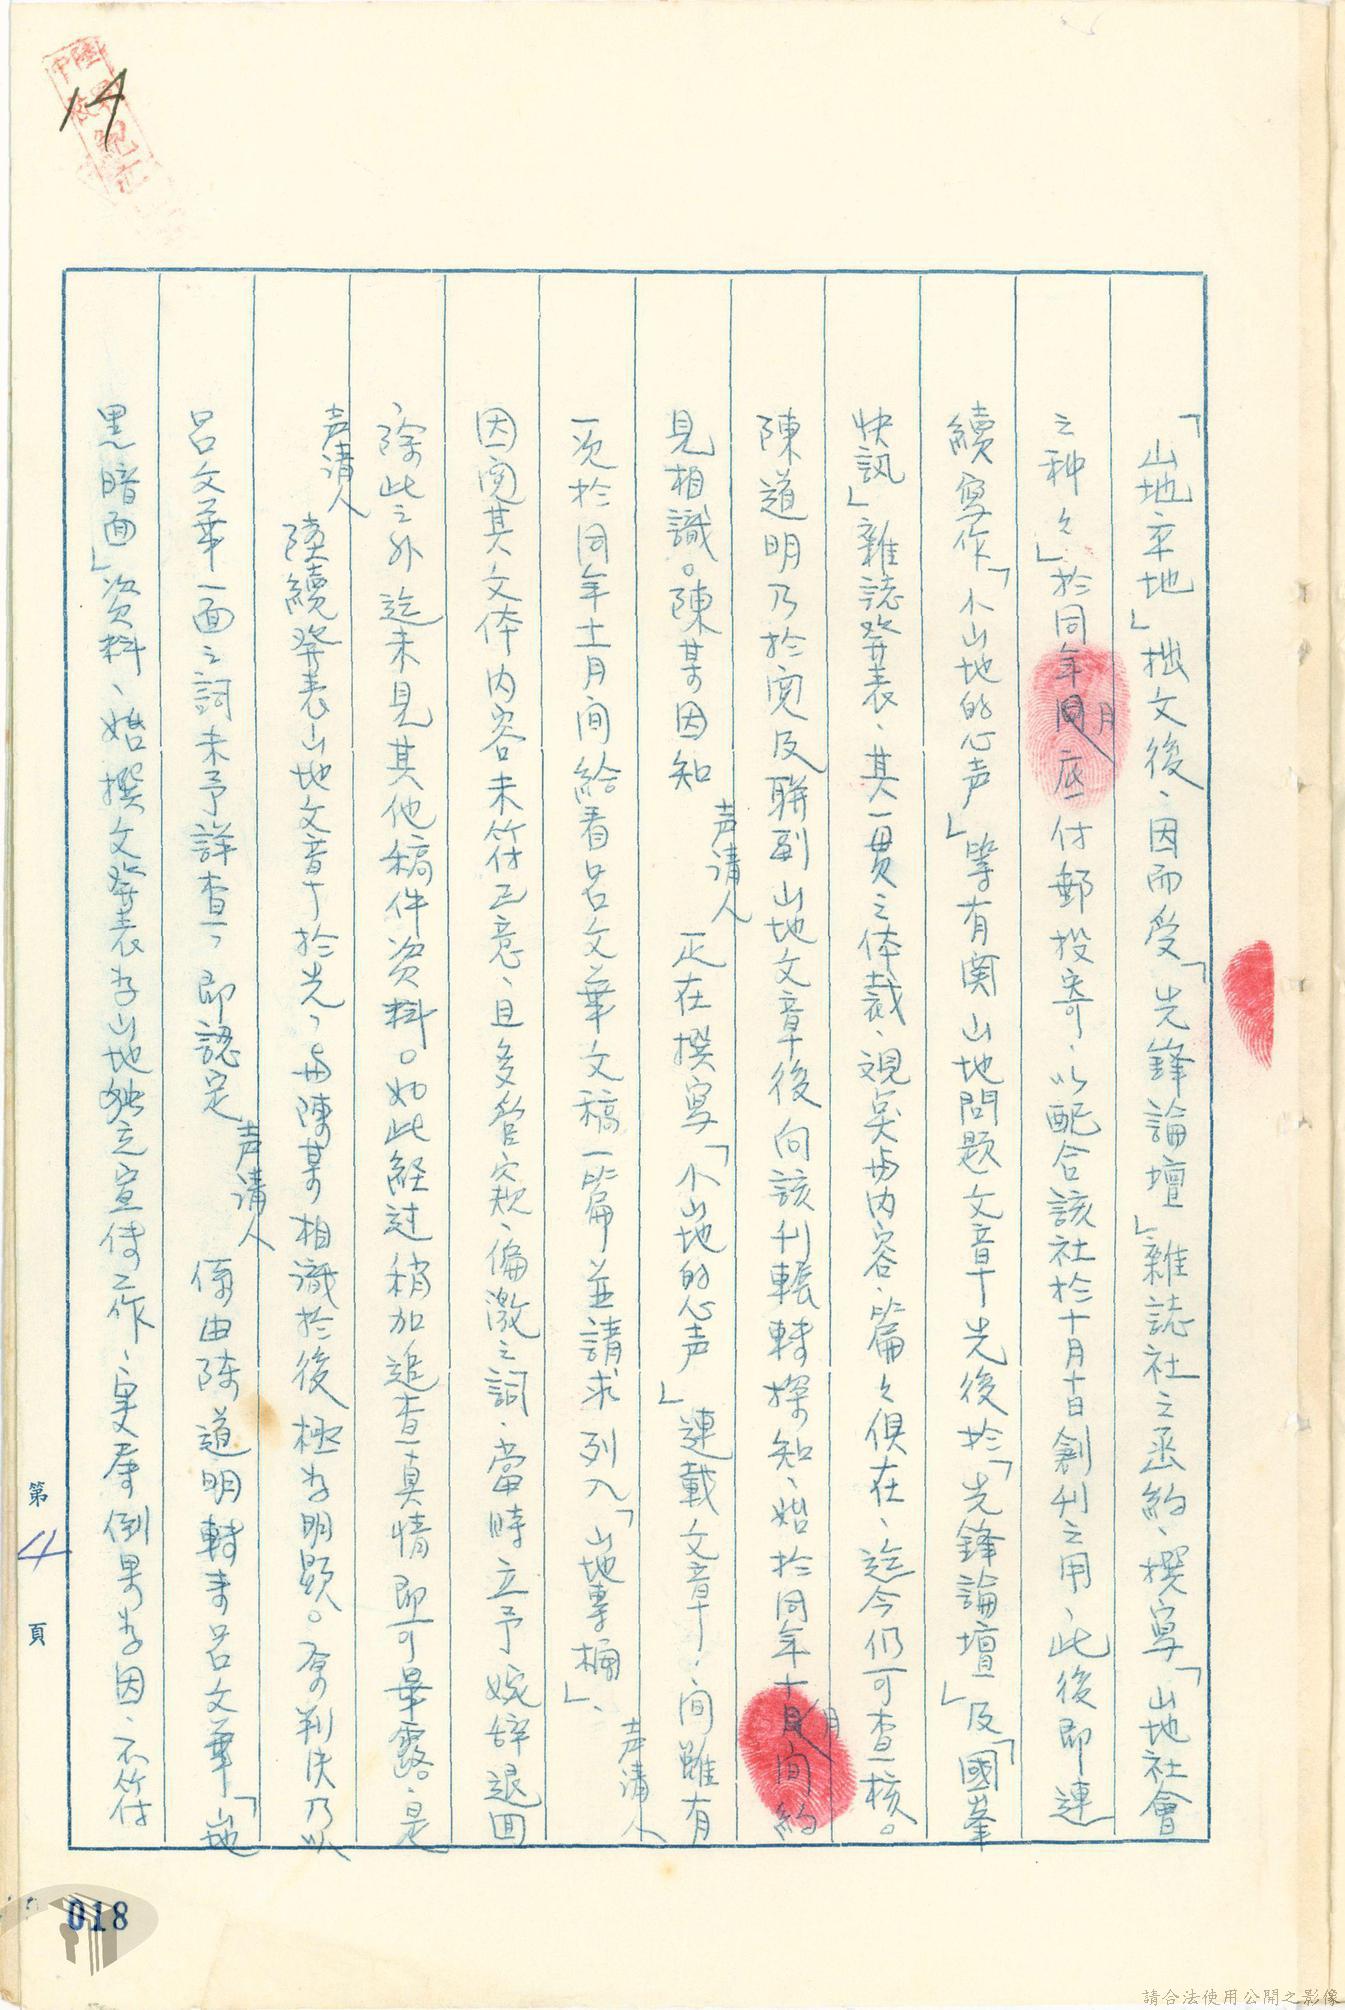 「山地平地」拙文後、因而受「先鋒論壇」雜誌社之函約、撰寫「山地社會
之种々」於同年月底付郵投寄、以配合該社於十月十日創刊之用、此後即連
續寫作「小山地的心声」等有関山地問題文章先後於「先鋒論壇」及「國峯
快訊」雜誌發表、其一貫之体裁、視奌與内容、篇々俱在、迄今仍可查核。
陳道明乃於閲及聯副山地文章後向該刊輾轉探知、始於同年十月間約
見相識。陳某因知声请人正在撰寫「小山地的心声」連載文章、间雖有
一次於同年十一月间給看呂文華文稿一篇並請求列入「山地專欄」、声请人
因閲其文体内容未符正意、且多管窺、偏激之詞、當時立予婉辞退回
、除此之外迄未見其他稿件资料。如此経过稍加追查真情即可畢露、是
声请人陸續發表山地文章於先，與陳某相識於後極为明顯。原判决乃以
呂文華一面之詞未予詳查，即認定声请人係由陳道明轉来呂文華「山地
黒暗面」资料、始撰文發表为山地独立宣传工作、寔属倒果为因、不符
第4頁
14
018
請合法使用公開之影像